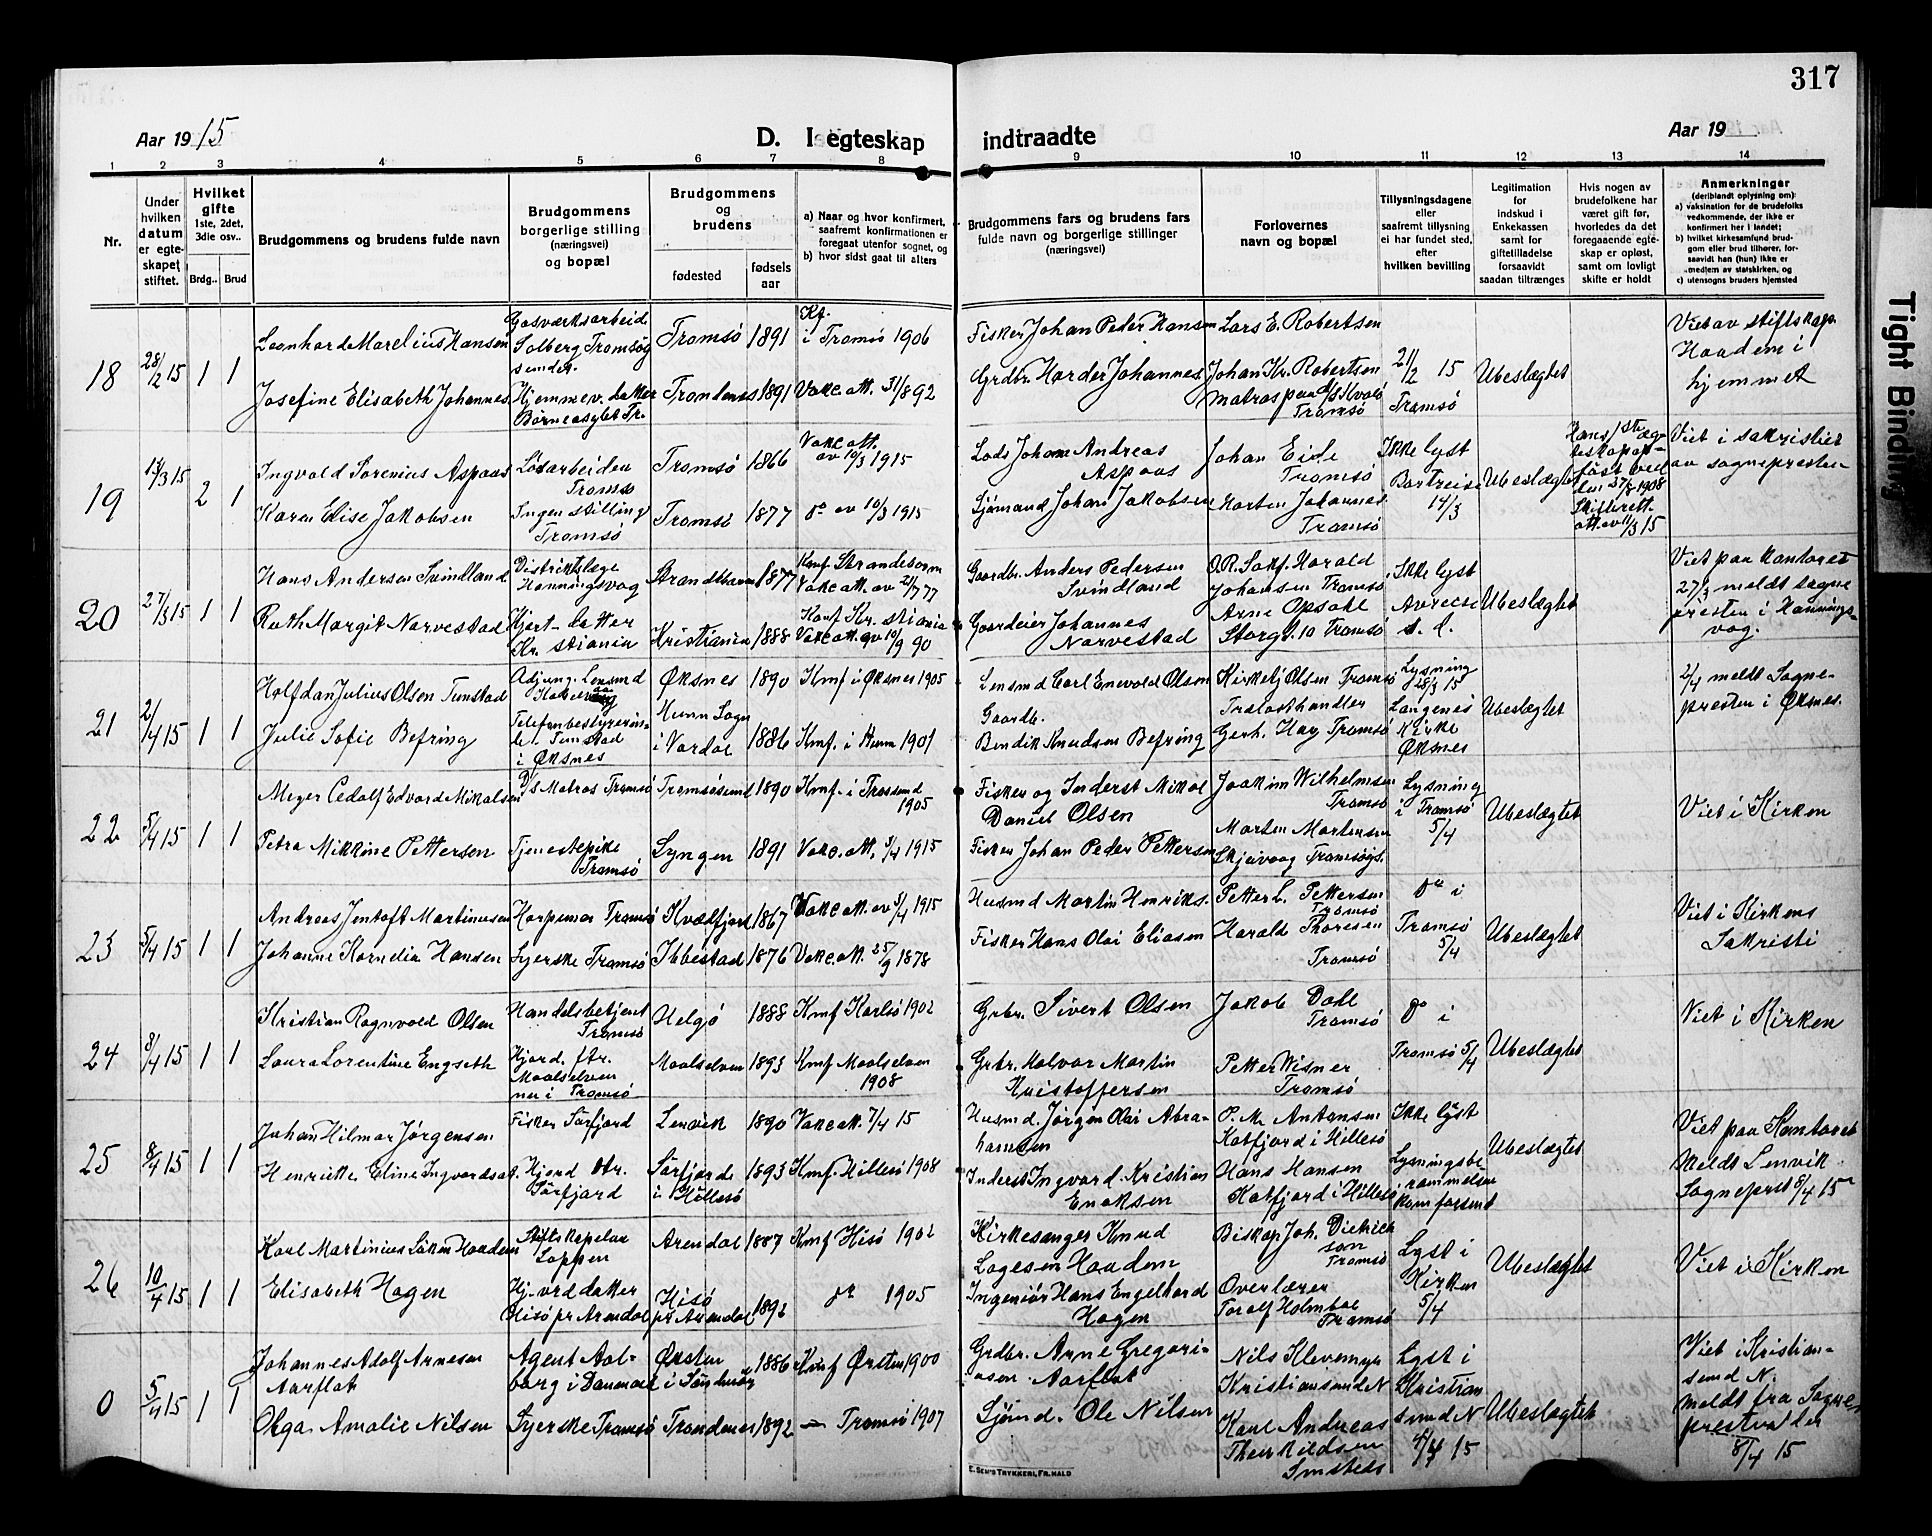 317
Aar 1915
D. I egteskap indtraadte
Aar 19
1 2 3 4 5 6 7 8 9 10 11 12 13 14
Nr.
Under hvilken datum er egteskapet stiftet.
Hvilket gifte 1ste, 2det, 3die osv..
Brdg.. Brud
Brudgommens og brudens fulde navn
Brudgommens borgerlige stilling (næringsvei) og bopæl
Brudgommens og brudens
fødested
fødselsaar
a) Naar og hvor konfirmert, saafremt konfirmationen er foregaat utenfor sognet, og
b) hvor sidst gaat til alters
Brudgommens fars og brudens fars fulde navn og borgerlige stillinger (næringsvei)
Forlovernes navn og bopæl
Tillysningsdagene eller saafremt tillysning ei har fundet sted, efter hvilken bevilling
Legitimation for indskud i Enkekassen samt for giftetilladelse forsaavidt saadan tiltrænges
Hvis nogen av brudefolkene har været gift før, hvorledes da det foregaaende egteskap er opløst, samt om lovligt skifte er holdt
Anmerkninger
(deriblandt oplysning om):
a) vaksination for de brudefolks vedkommende, der ikke er konfirmert her i landet;
b) hvilket kirkesamfund brudgom eller brud tilhører, forsaavidt han (hun) ikke er medlem av statskirken, og
c) utensogns bruders hjemsted
18 28/2 15 1 1
Leonhard Marelius Hansen
Gasværksarbeid. Solberg Tromsøsundet
Tromsø 1891
Kf. i Tromsø 1906
Fisker Johan Peder Hansen
Lars E. Robertsen
Josefine Elisabeth Johannes
Hjemmev. datter
Trondenes 1891 Vakc att. 31/8 92
Grdbr. Harder Johannes
Johan Kr. Robertsen
Matros paa
Tromsø
21/2 15 Tromsø
Ubeslægtet
Viet av stiftskap. Haadem i hjemmet
19 15 2 1
Ingvald Sorenius Aspaas
Løsarbeider Tromsø
Tromsø 1866
Vakc att. av 10/3 1915
Lods Johan Andreas Aspaas
Johan Eide Tromsø
Karen Elise Jakobsen
Ingen stilling Tromsø
Tromsø 1877
do av 10/3 1915
Sjømand Johan Jakobsen
Morten Johannes Tromsø
Ikke lyst
Bortreise 14/3
Ubeslægtet
Hans 1ste
27/8 1908
Skifterett. att. av 11/3 15
Viet i sakristiet av sognepresten
20 27/3 15 1 1
Hans Andersen Svindland
Distriktslæge Honningsvog
1877
Vakc att. av 2/7 77
Gaardbr. Anders Pedersen Svindland
O.R. Sakf. Harald Johansen Tromsø
Ruth Margit Narvestad
Hjert. datter Kr. stiania
Kristiania 1888
Konf Kr. stiania
Vakc att. av 10/9 90
Gaardeier Johannes Narvestad
Arne Opsahl Storg. 10 Tromsø
Ikke lyst
Avreise
Ubeslægtet
Viet paa kontoret 27/3 meldt sogne presten i Honningsvog.
21 2/4 15 1 1
Halfdan Julius Olsen Tunstad
Øksnes 1890 Kmf i Øksnes 1905
Lensmd Carl Enevold Olsen
Kirketj Olsen Tromsø
Julie Sofie Befring
Telefonbestyrerinde. Tunstad i Øksnes
1886 Kmf. i 1901
Gaardb. Bendik Knudsen Befring
Trelasthandler Gerh. Hay Tromsø
Lysning 28/3 15
Langenes Kirke Øksnes
Ubeslægtet
2/4 meldt Sognepresten i Øksnes.
22 5/4 15 1 1
Meyer Cedolf Edvard Mikalsen
D/S Matros Tromsø
Tromsøsund 1890
Kmf. i Tromsund 1905
Fisker og Inderst Mikal Daniel Olsen
Joakim Wilhelmsen Tromsø
Petra Mikkine Pettersen
Tjenestepike Tromsø
Lyngen 1891
Vakc. att. 3/4 1915
Fisker Johan Peder Pettersen
Morten Mortensen
Skjeivaag Tromsøys.
Lysning i Tromsø 5/4
Ubeslægtet
Viet i Kirken
23 5/4 15 1 1
Andreas Jentoft Martinusen
Tromsø
Kvædfjord 1867
Vakc att. av 3/4 1915
Husmd Martin Henriks.
Petter L. Pettersen Tromsø
Johanne Kornelia Hansen
Syerske Tromsø
Ibbestad 1876
Vakc. att. 25/9 1878
Fisker Hans Olai Eliasen
Harald Thoresen Tromsø
do i Tromsø 5/4
Ubeslægtet
Viet i Kirkens Sakristi
24 8/4 15 1 1
Kristian Ragnvald Olsen
Handelsbetjent Tromsø
Helgø 1888 Kmf Karlsø 1902
Grbr. Sivert Olsen
Jakob Dahl Tromsø
Laura Lorentine Engseth
Hjord. dtr. Maalselven nu i Tromsø
Maalselven 1893
Kmf Maalselven 1908
Grbr. Halvar Martin Kristoffersen
Petter Wisner Tromsø
do i Tromsø 5/4
Ubeslægtet
Viet i Kirken
25 8/4 15 1 1
Johan Hilmar Jørgensen
Fisker Sørfjord
Lenvik 1890 Vakc att. 7/4 15
Husmd. Jørgen Olai Abrahamsen
P. M. Antonsen Katfjord i Hillesø
Henrikke Eline Ingvardsdt.
Hjord dtr. Sørfjord
Sørfjord i Hillesø 1893 Kmf. Hillesø 1908
Inderst Ingvard Kristian Enoksen
Hans Hansen Katfjord i Hillesø
Ikke lyst
Lysningsbegjæringen kom for sent
Ubeslægtet
Viet paa Kontoret
Meldt Lenvik Sogneprst 8/4 15
26 10/4 15 1 1
Karl Martinius Haadem
Stiftskapelan Loppen
Arendal 1887 Kmf Hisø 1902
Kirkesanger Knud Lagesen Haadem
Biskop Joh. Dietrichson Tromsø
Elisabeth Hagen
Hj. vrd datter Hisø pr Arendal
Hisø pr Arendal 1892
do 1905
Ingeniør Hans Engelhard Hagen
Overlærer Toralf Holmboe Tromsø
Lyst i Kirken 5/4
Ubeslægtet
Viet i Kirken
0 5/4 15 1 1
Johannes Adolf Arnesen Aarflot
Agent Aalborg i Danmark
Ørsten i Søndmør 1886 Kmf Ørsten 1900
Grdbr. Arne Gregoriusen Aarflot
Nils Klevemyr Kristiansund N
Olga Amalie Nilsen
Syerske Tromsø
Trondenes 1892 — Tromsø 1907
Sjømd. Ole Nilsen
Karl Andreas
Lyst i Kristiansund N 4/4 15
Ubeslægtet
Viet i Kristiansund N. meldt fra Sogneprestvalden 8/4 15
E. SEM'S TRYKKERI, FR.HALD
Tight Binding